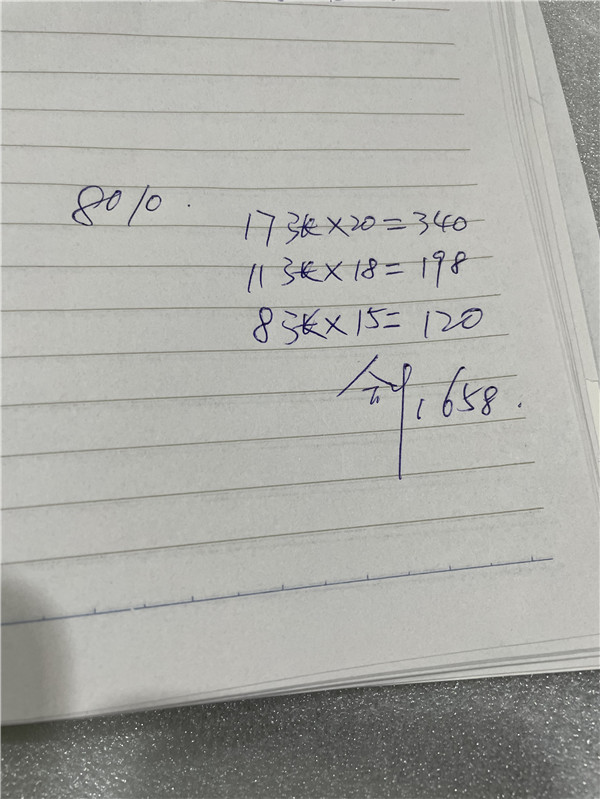 80%.
17张×20=340
11张×18=198
8张×15=120
658.